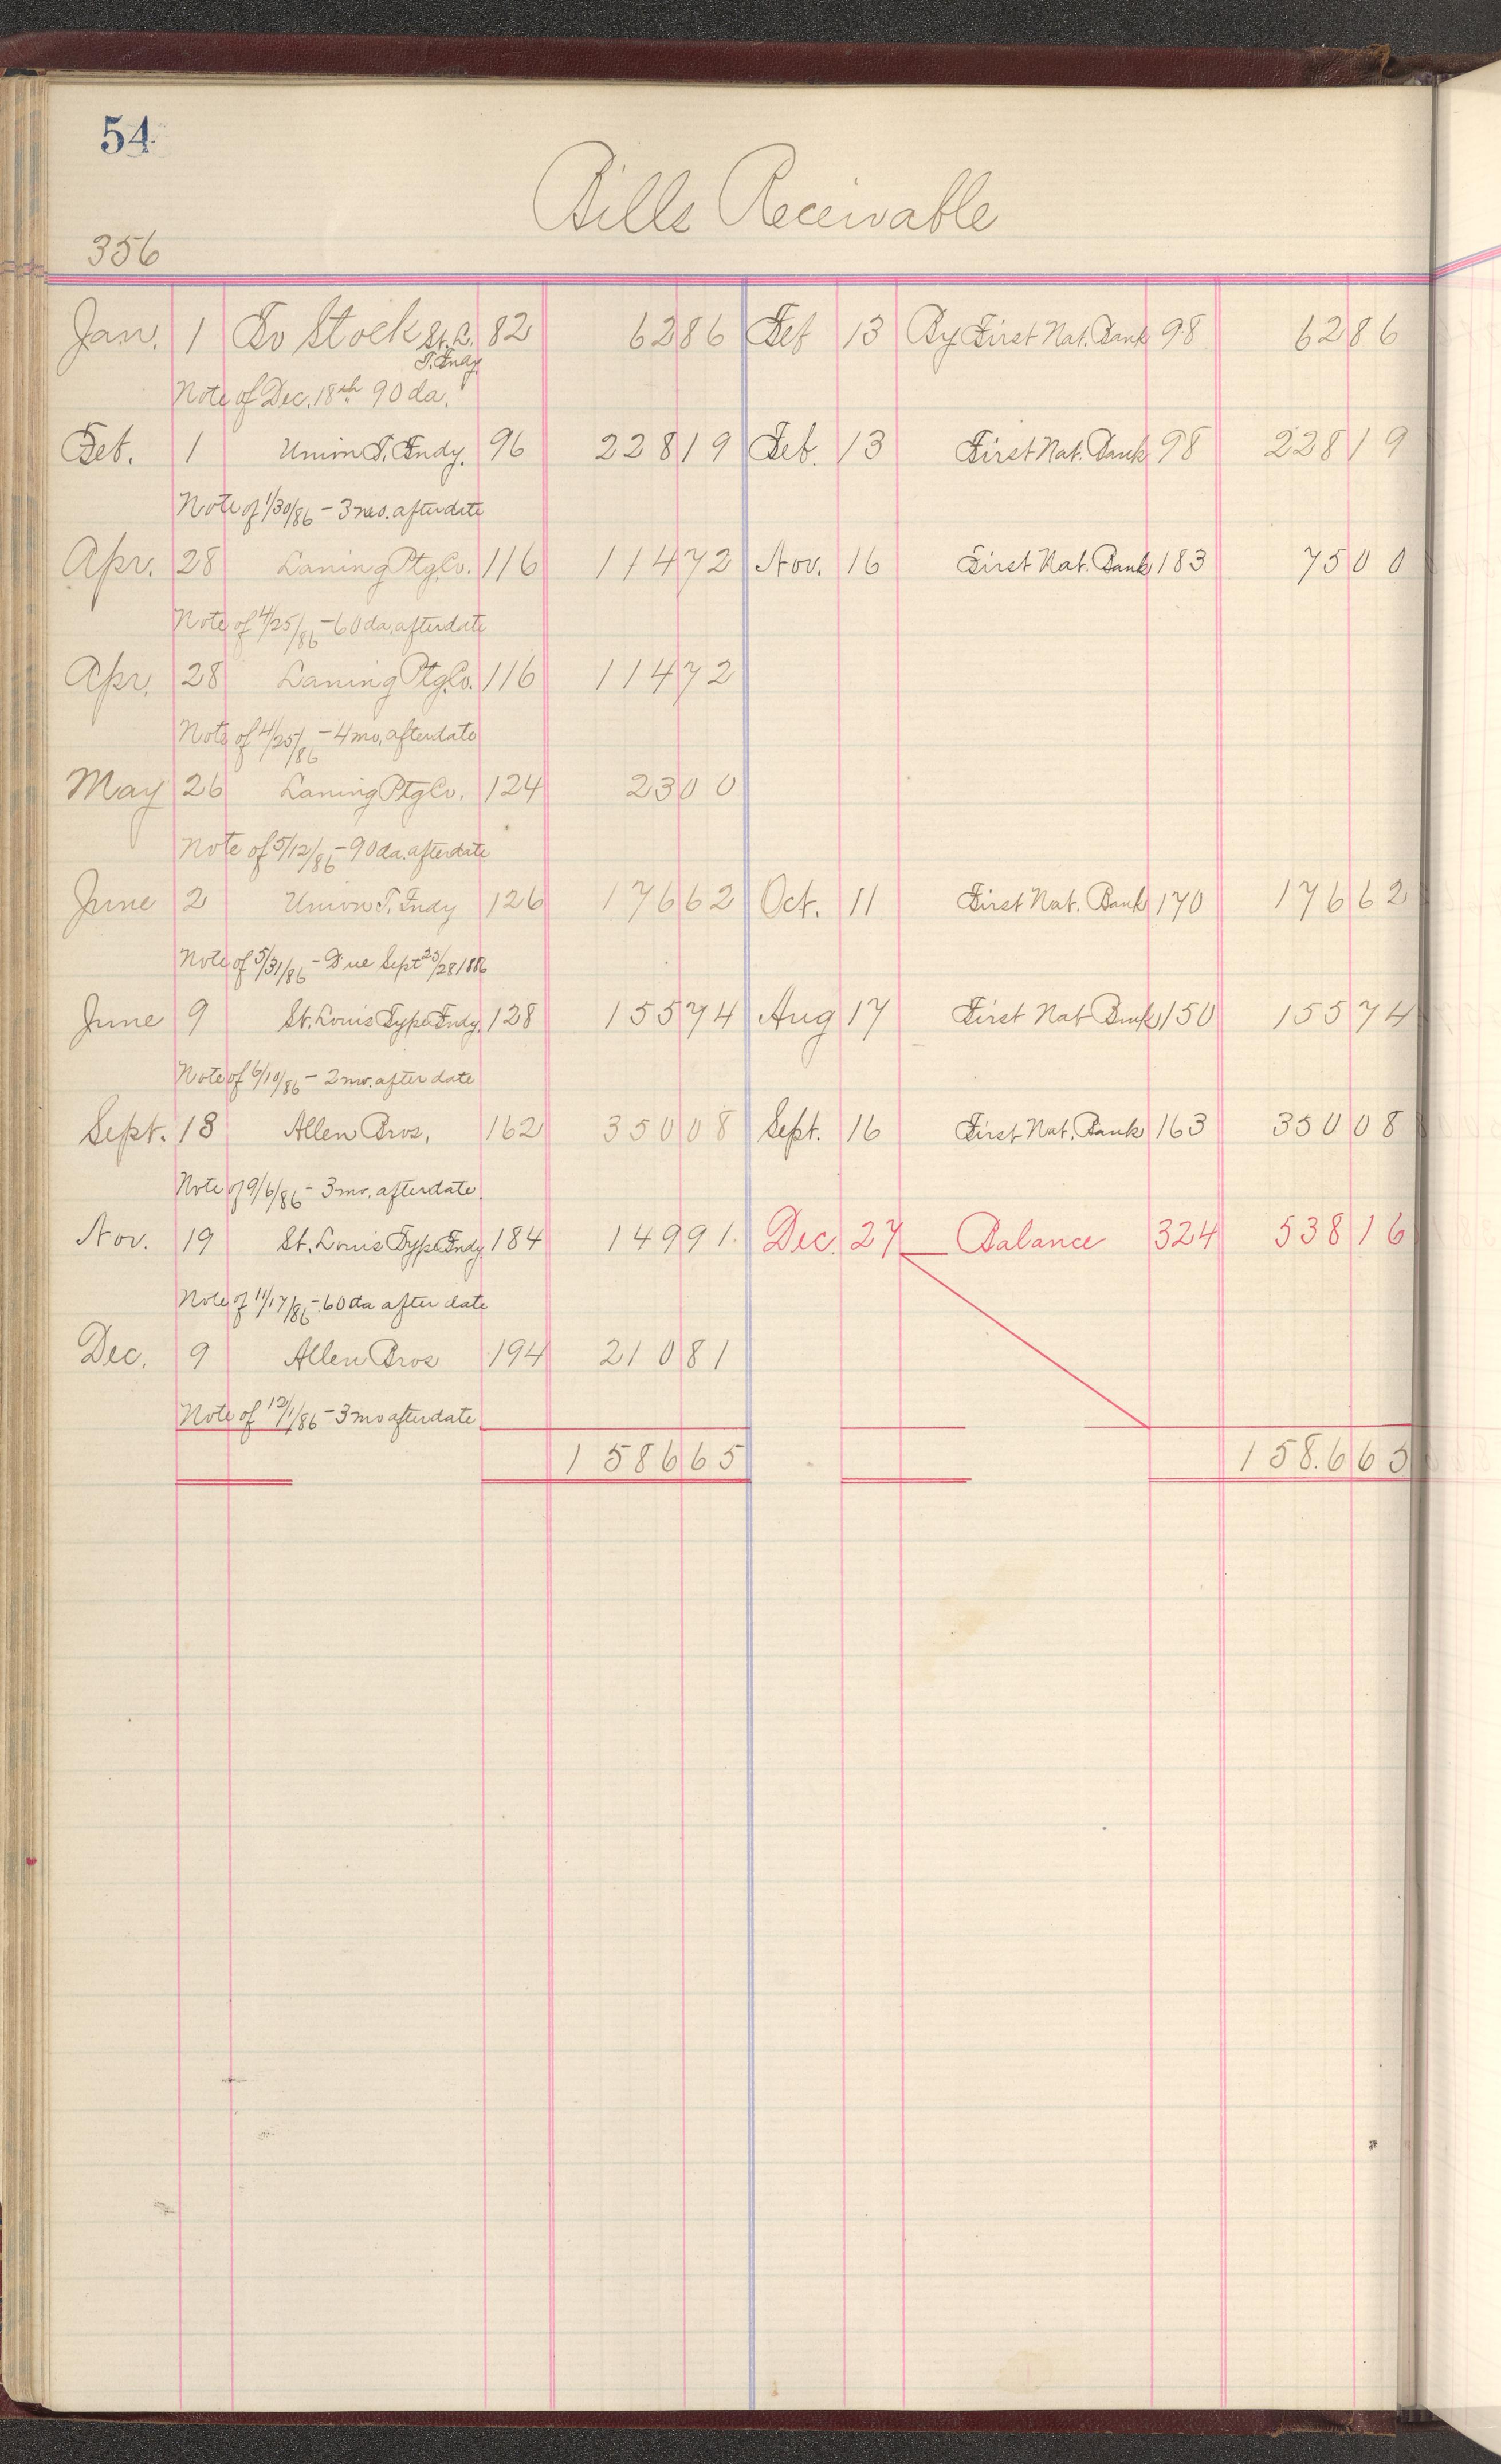 54
Bills Receivable
356
Jan. 1 To Stock St. L. 82 62 86 Feb 13 By First Nat. Bank 98 62 86
T. Fndy.
Note of Dec. 18th 90 da.
Feb. 1 Union T. Fndy. 96 228 19 Feb. 13 First Nat. Bank 98 228 19
Note of 1/30/86 - 3 mo. after date
Apr. 28 Laning Ptg. Co. 116 114 72 Nov. 16 First Nat. Bank 183 75 00
Note of 4/25/86 - 60 da. after date
Apr. 28 Laning Ptg. Co. 116 114 72
Note of 4/25/86 - 4 mo. after date
May 26 Laning Ptg Co. 124 23 00
Note of 5/12/86 - 90 da. after date
June 2 Union T. Fndy 126 176 62 Oct. 11 First Nat. Bank 170 176 62
Note of 5/31/86 - Due Sept 25/28 1886
June 9 St. Louis Type Fndy. 128 155 74 Aug 17 First Nat Bank 150 155 74
Note of 6/10/86 - 2 mo. after date
Sept. 18 Allen Bros. 162 350 08 Sept. 16 First Nat. Bank 163 350 08
Note of 9/6/86 - 3 mo. after date
Nov. 19 St. Louis Type Fndy 184 149 91 Dec. 27 Balance 324 538 16
Note of 11/17/86 - 60 da after date
Dec. 9 Allen Bros 194 210 81
Note of 12/1/86 - 3 mo after date
1 586 65 1 58.6 65